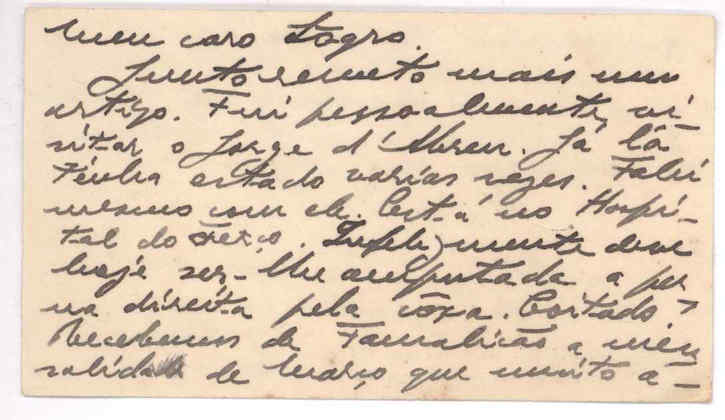 Meu caro Lagro.
Junto remeto mais um
artigo. Fui pessoalmente vi-
sitar o Jorge d'Abreu. Já lá
tinha estado varias vezes. Falei
mesmo com ele. Está no Hospi-
tal do Terço. Infelizmente deve
hoje ser-lhe amputada a per
na direita pela coxa. Coitado!
Recebemos de Famalicão a men
salidade de Março que muito a-